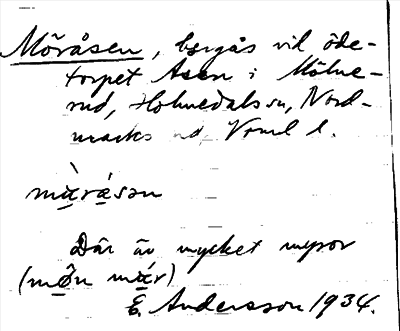 Möråsen, bergås vid öde-
torpet Åsen i Mölne-
rud, Holmedals sn, Nord-
marks hd, Vrml l.
mὰråsən
Där är mycket myror
E. Andersson 1934.